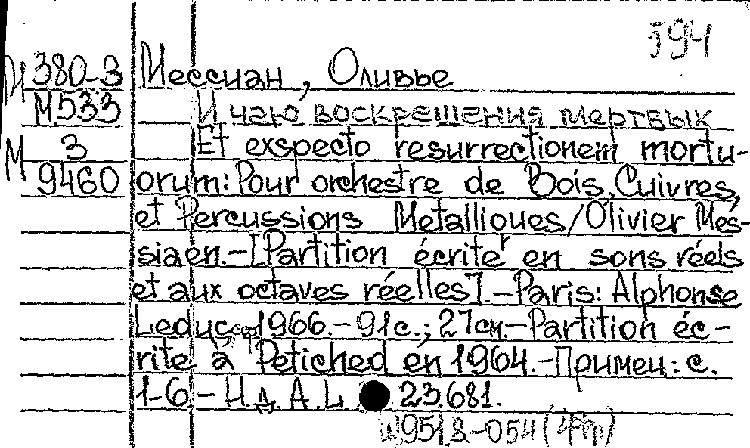 594
И 380-3 Мессиан, Оливье
М533 И чаю воскрешения мертвых
М 3 Et exspecto resurrectionem mortu-
9460 orum: Pour orchestre de Bois, Cuivres,
et Percussions Metalliques/Olivier Mes-
siaen.-[Partition écrite en sons réels
et aux octaves réelles].-Paris: Alphonse
Leduc, 1966.-91с.; 27см.-Partition éc-
rite à Petiched en 1964.-Примеч.: с.
1-6.- Н.д. A.L. 23.681.